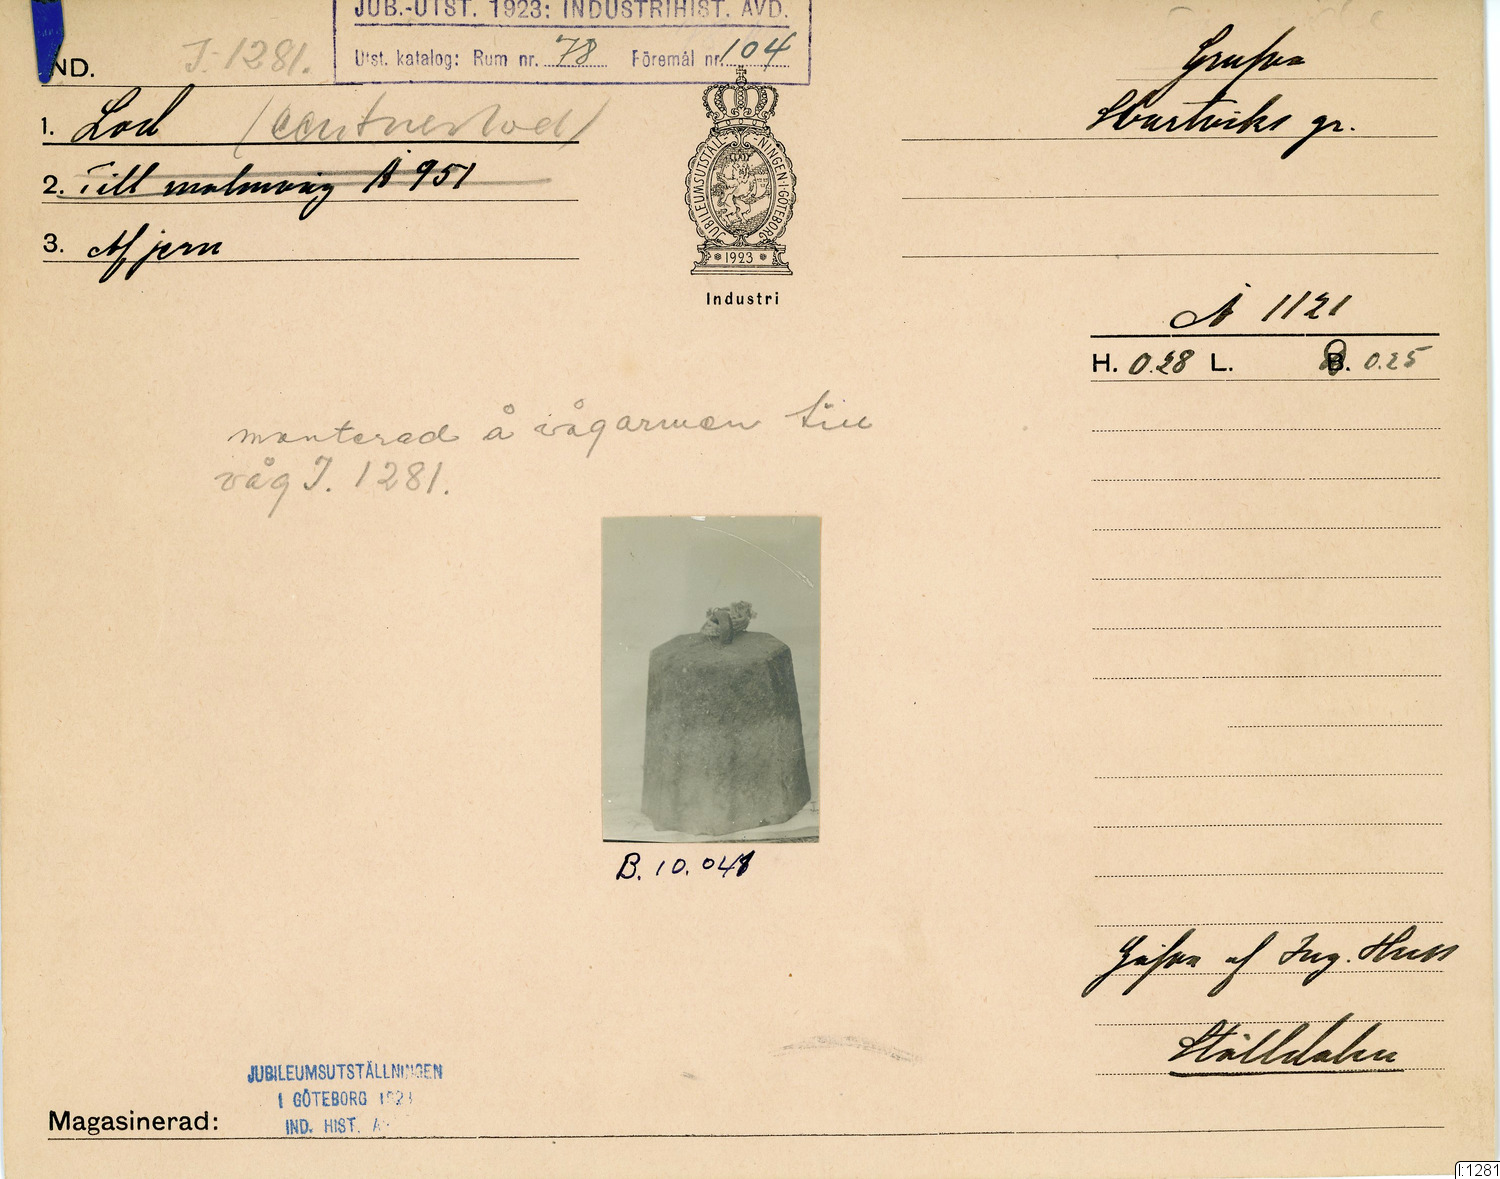 JUB.-UTST. 1923: INDUSTRIHIST. AVD.
Utst. katalog: Rum nr. 78 Föremål nr. 104
IND. J. 1281.
1. Lod (Centnerlod)
2. Till malmvåg N 951
3. Af jern
JUBILEUMSUTSTÄLLNINGEN·I·GÖTEBORG
1923
Industri
Grufva
gr.
N 1121
H. 0.28 L. B. 0.25
monterad å vågarmen till
våg J. 1281.
B. 10.048
Gåfva af Ing. Huss
Ställdalen
JUBILEUMSUTSTÄLLNINGEN
I GÖTEBORG 1923
IND. HIST. A
Magasinerad:
I:1281